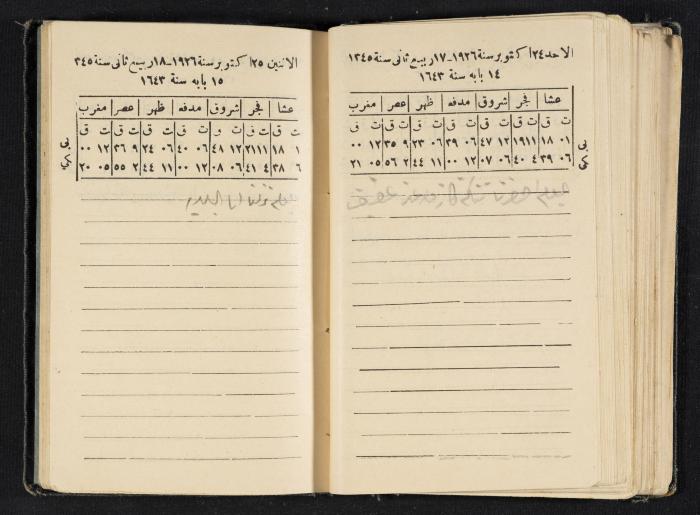 الاحد ٢٤ اكتوبر سنة ١٩٢٦ـ١٧ ربيع ثانى سنة ١٣٤٥
١٤ بابه سنة ١٦٤٣
عشا فجر شروق مدفه ظهر عصر مغرب
ت ق ت ق ت ق ت ق ت ق ت ق ت ق
٠١ ١٨ ١١ ١٩ ١٢ ٤٧ ٠٦ ٣٩ ٠٦ ٢٣ ٩ ٣٥ ١٢ ٠٠
٠٦ ٣٩ ٤ ٤٠ ٠٦ ٠٧ ١٢ ٠٠ ١١ ٤٤ ٢ ٥٦ ٠٥ ٢١
الاثنين ٢٥ اكتوبر سنة ١٩٢٦ـ١٨ ربيع ثانى سنة ٣٤٥
١٥ بابه سنة ١٦٤٣
عشا فجر شروق مدفه ظهر عصر مغرب
ت ق ت ق ت و ت ق ت ق ت ق ت ق
١ ١٨ ١١ ٢١ ١٢ ٤٨ ٠٦ ٤٠ ٠٦ ٢٤ ٩ ٣٦ ١٢ ٠٠
٦ ٣٨ ٤ ٤١ ٠٦ ٠٨ ١٢ ٠٠ ١١ ٤٤ ٢ ٥٥ ٠٥ ٢٠